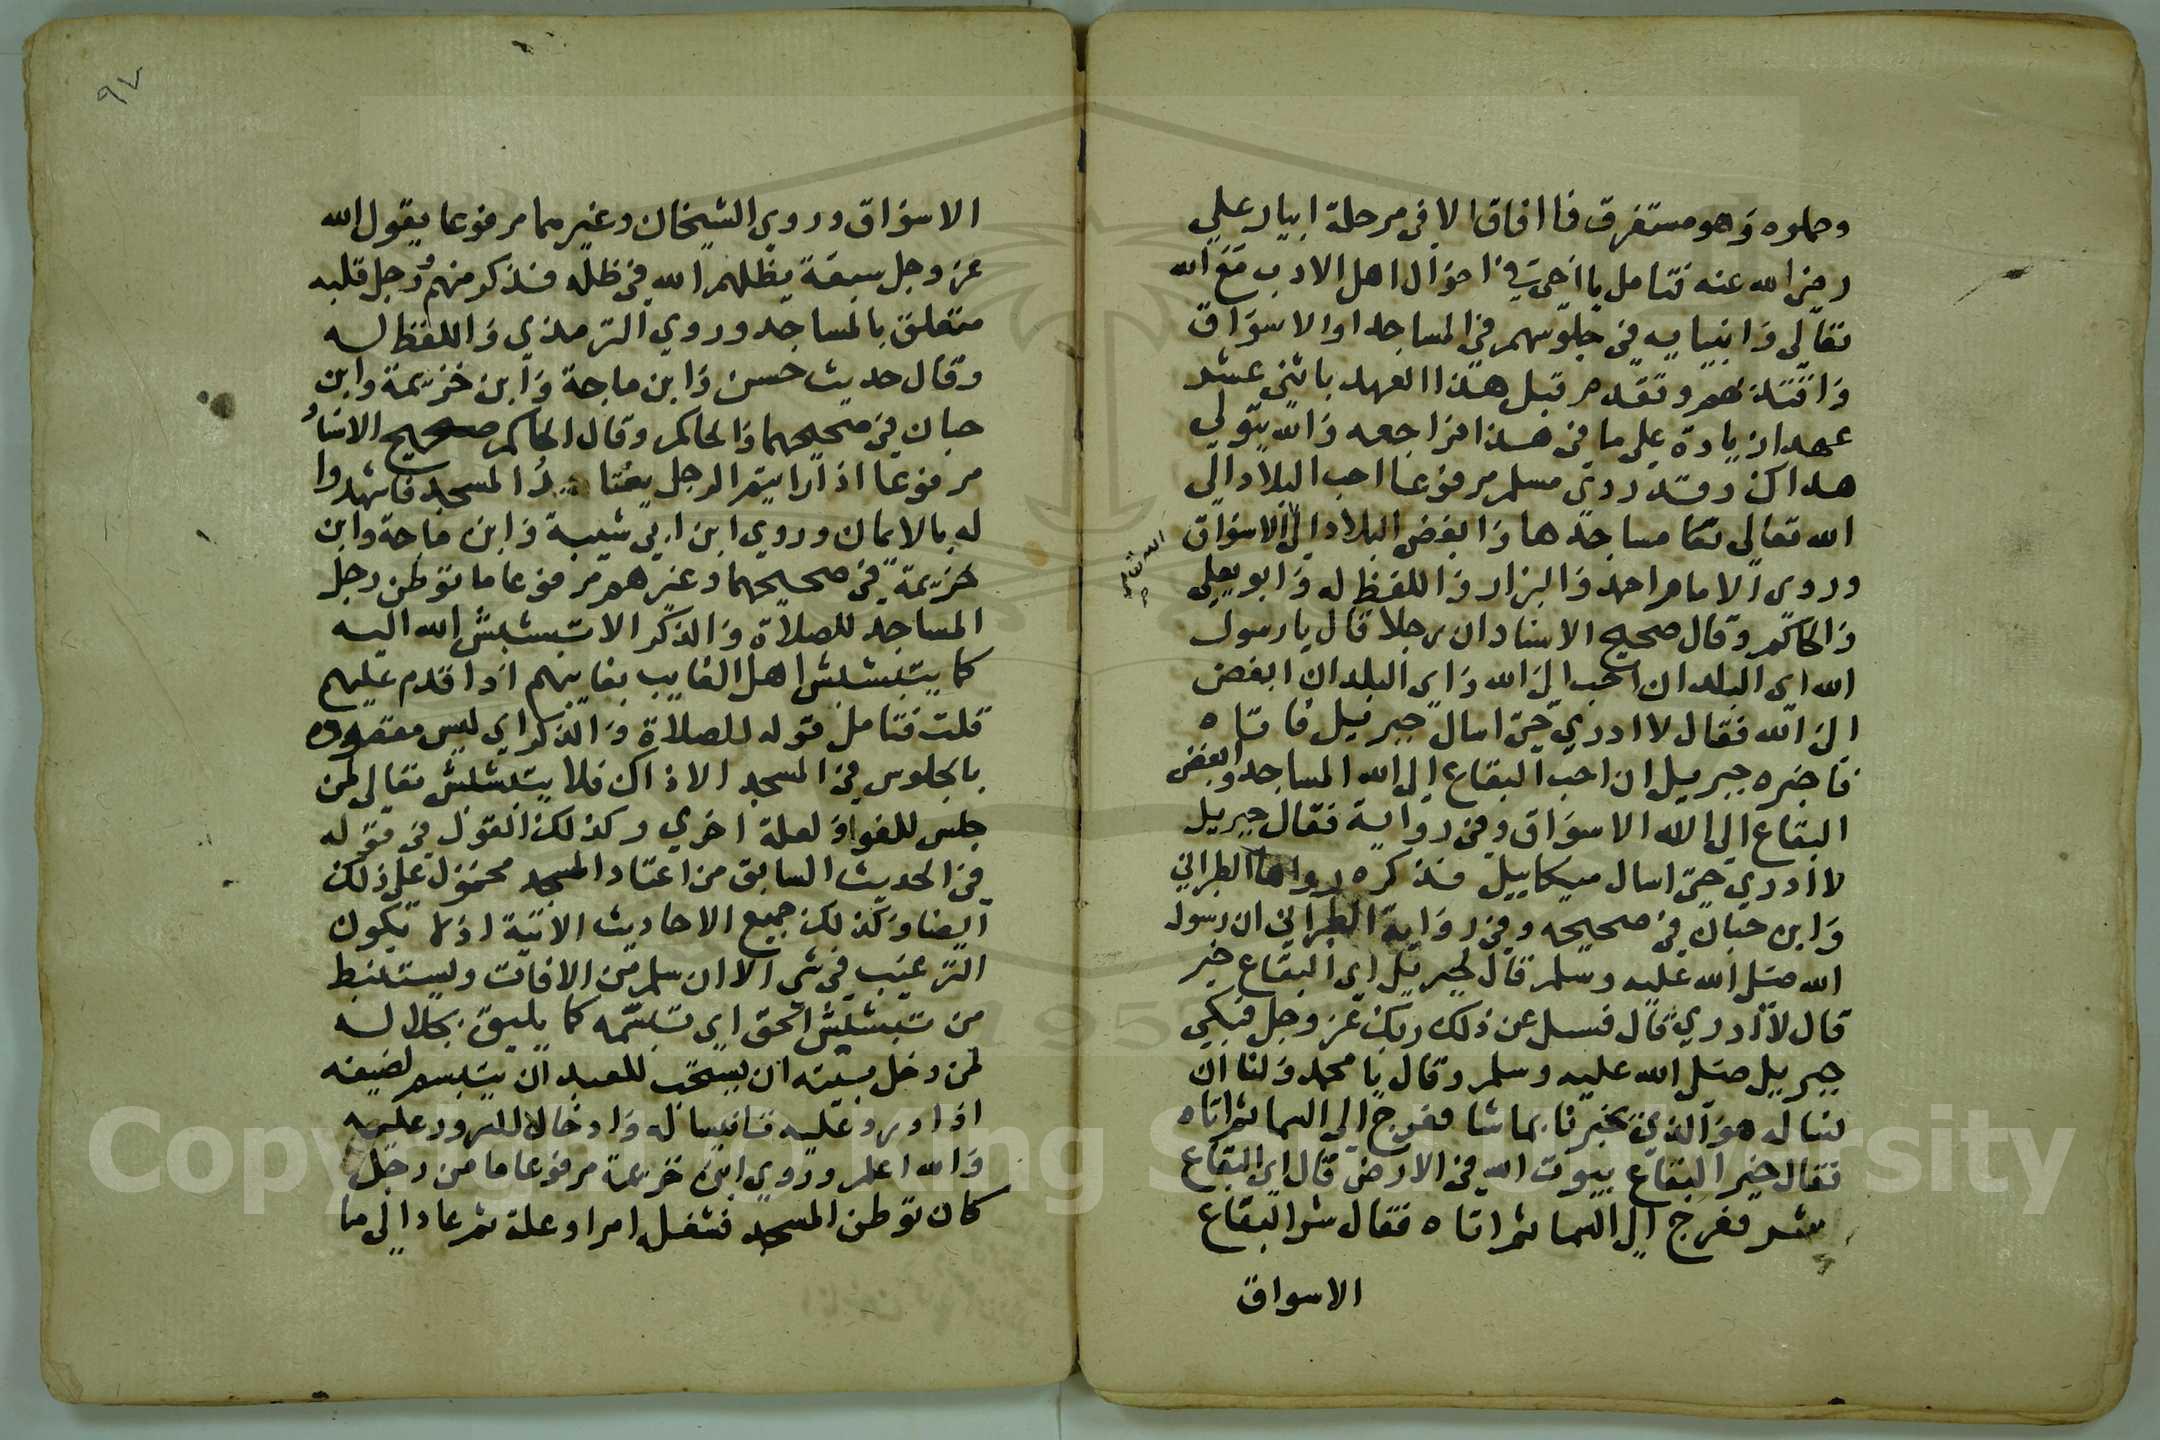 وحملوه وهو مستغرق فما افاق الا في مرحلة ابيار علي
رضي الله عنه فتامل يا اخي في احوال اهل الادب مع الله
تعالى وانبيايه في جلوسهم في المساجد او الاسواق
واقتد بهم وتقدم قبل هذا العهد باثني عشر
عهدا زيادة على ما في هذا فراجعه والله يتولى
هداك وقد روى مسلم مرفوعا احب البلاد الى
الله تعالى مساجدها وابغض البلاد الى الاسواق
الله تعالى
صح
وروى الامام احمد والبزار واللفظ له وابو يعلى
والحاكم وقال صحيح الاسناد ان رجلا قال يا رسول
الله اى البلدان احب الى الله واى البلدان ابغض
الى الله فقال لا ادري حتى اسال جبريل فاتاه
فاخبره جبريل ان احب البقاع الى الله المساجد وابغض
البقاع الى الله الاسواق وفي رواية فقال جبريل
لا ادري حتى اسال ميكاييل فذكره رواها الطبراني
وابن حبان في صحيحه وفي رواية الطبراني ان رسول
الله صلى الله عليه وسلم قال لجبريل اي البقاع خير
قال لا ادري قال فسل عن ذلك ربك عز وجل فبكى
جبريل صلى الله عليه وسلم وقال يا محمد ولنا ان
نساله هو الذي يخبرنا بما شا فعرج الى السما ثم اتاه
فقال خير البقاع بيوت الله في الارض قال اي البقاع
شر فعرج الى السما ثم اتاه فقال شر البقاع
الاسواق
٩٧
الاسواق وروى الشيخان وغيرهما مرفوعا يقول الله
عز وجل سبعة يظلهم الله في ظله فذكر منهم ورجل قلبه
متعلق بالمساجد وروى الترمذي واللفظ له
وقال حديث حسن وابن ماجة وابن خزيمة وابن
حبان في صحيحهما والحاكم وقال الحاكم صحيح الاسناد
مرفوعا اذا رايتم الرجل يعتاد المسجد فاشهدوا
له بالايمان وروى ابن ابي شيبة وابن ماجة وابن
خزيمة في صحيحهما وغيرهم مرفوعا ما توطن رجل
المساجد للصلاة والذكر الا تبشبش الله اليه
كما يتبشبش اهل الغايب بغايبهم اذا قدم عليهم
قلت فتامل قوله للصلاة والذكر اي ليس مقصوده
بالجلوس في المسجد الا ذاك فلا يتبشبش تعالى لمن
جلس للغو او لعلة اخري وكذلك القول في قوله
في الحديث السابق من اعتاد المسجد محمول على ذلك
ايضا وكذلك جميع الاحاديث الاتية اذ لا يكون
الترغيب في شي الا ان سلم من الافات ويستنبط
من تبشبش الحق اي تبسمه كما يليق بجلاله
لمن دخل بيته ان يستحب للعبد ان يتبسم لضيفه
اذا ورد عليه تانيسا له وادخالا للسرور عليه
والله اعلم وروى ابن خزيمة مرفوعا ما من رجل
كان توطن المسجد فشغله امر او علة ثم عاد الى ما
Copyright © King Saud University
1957